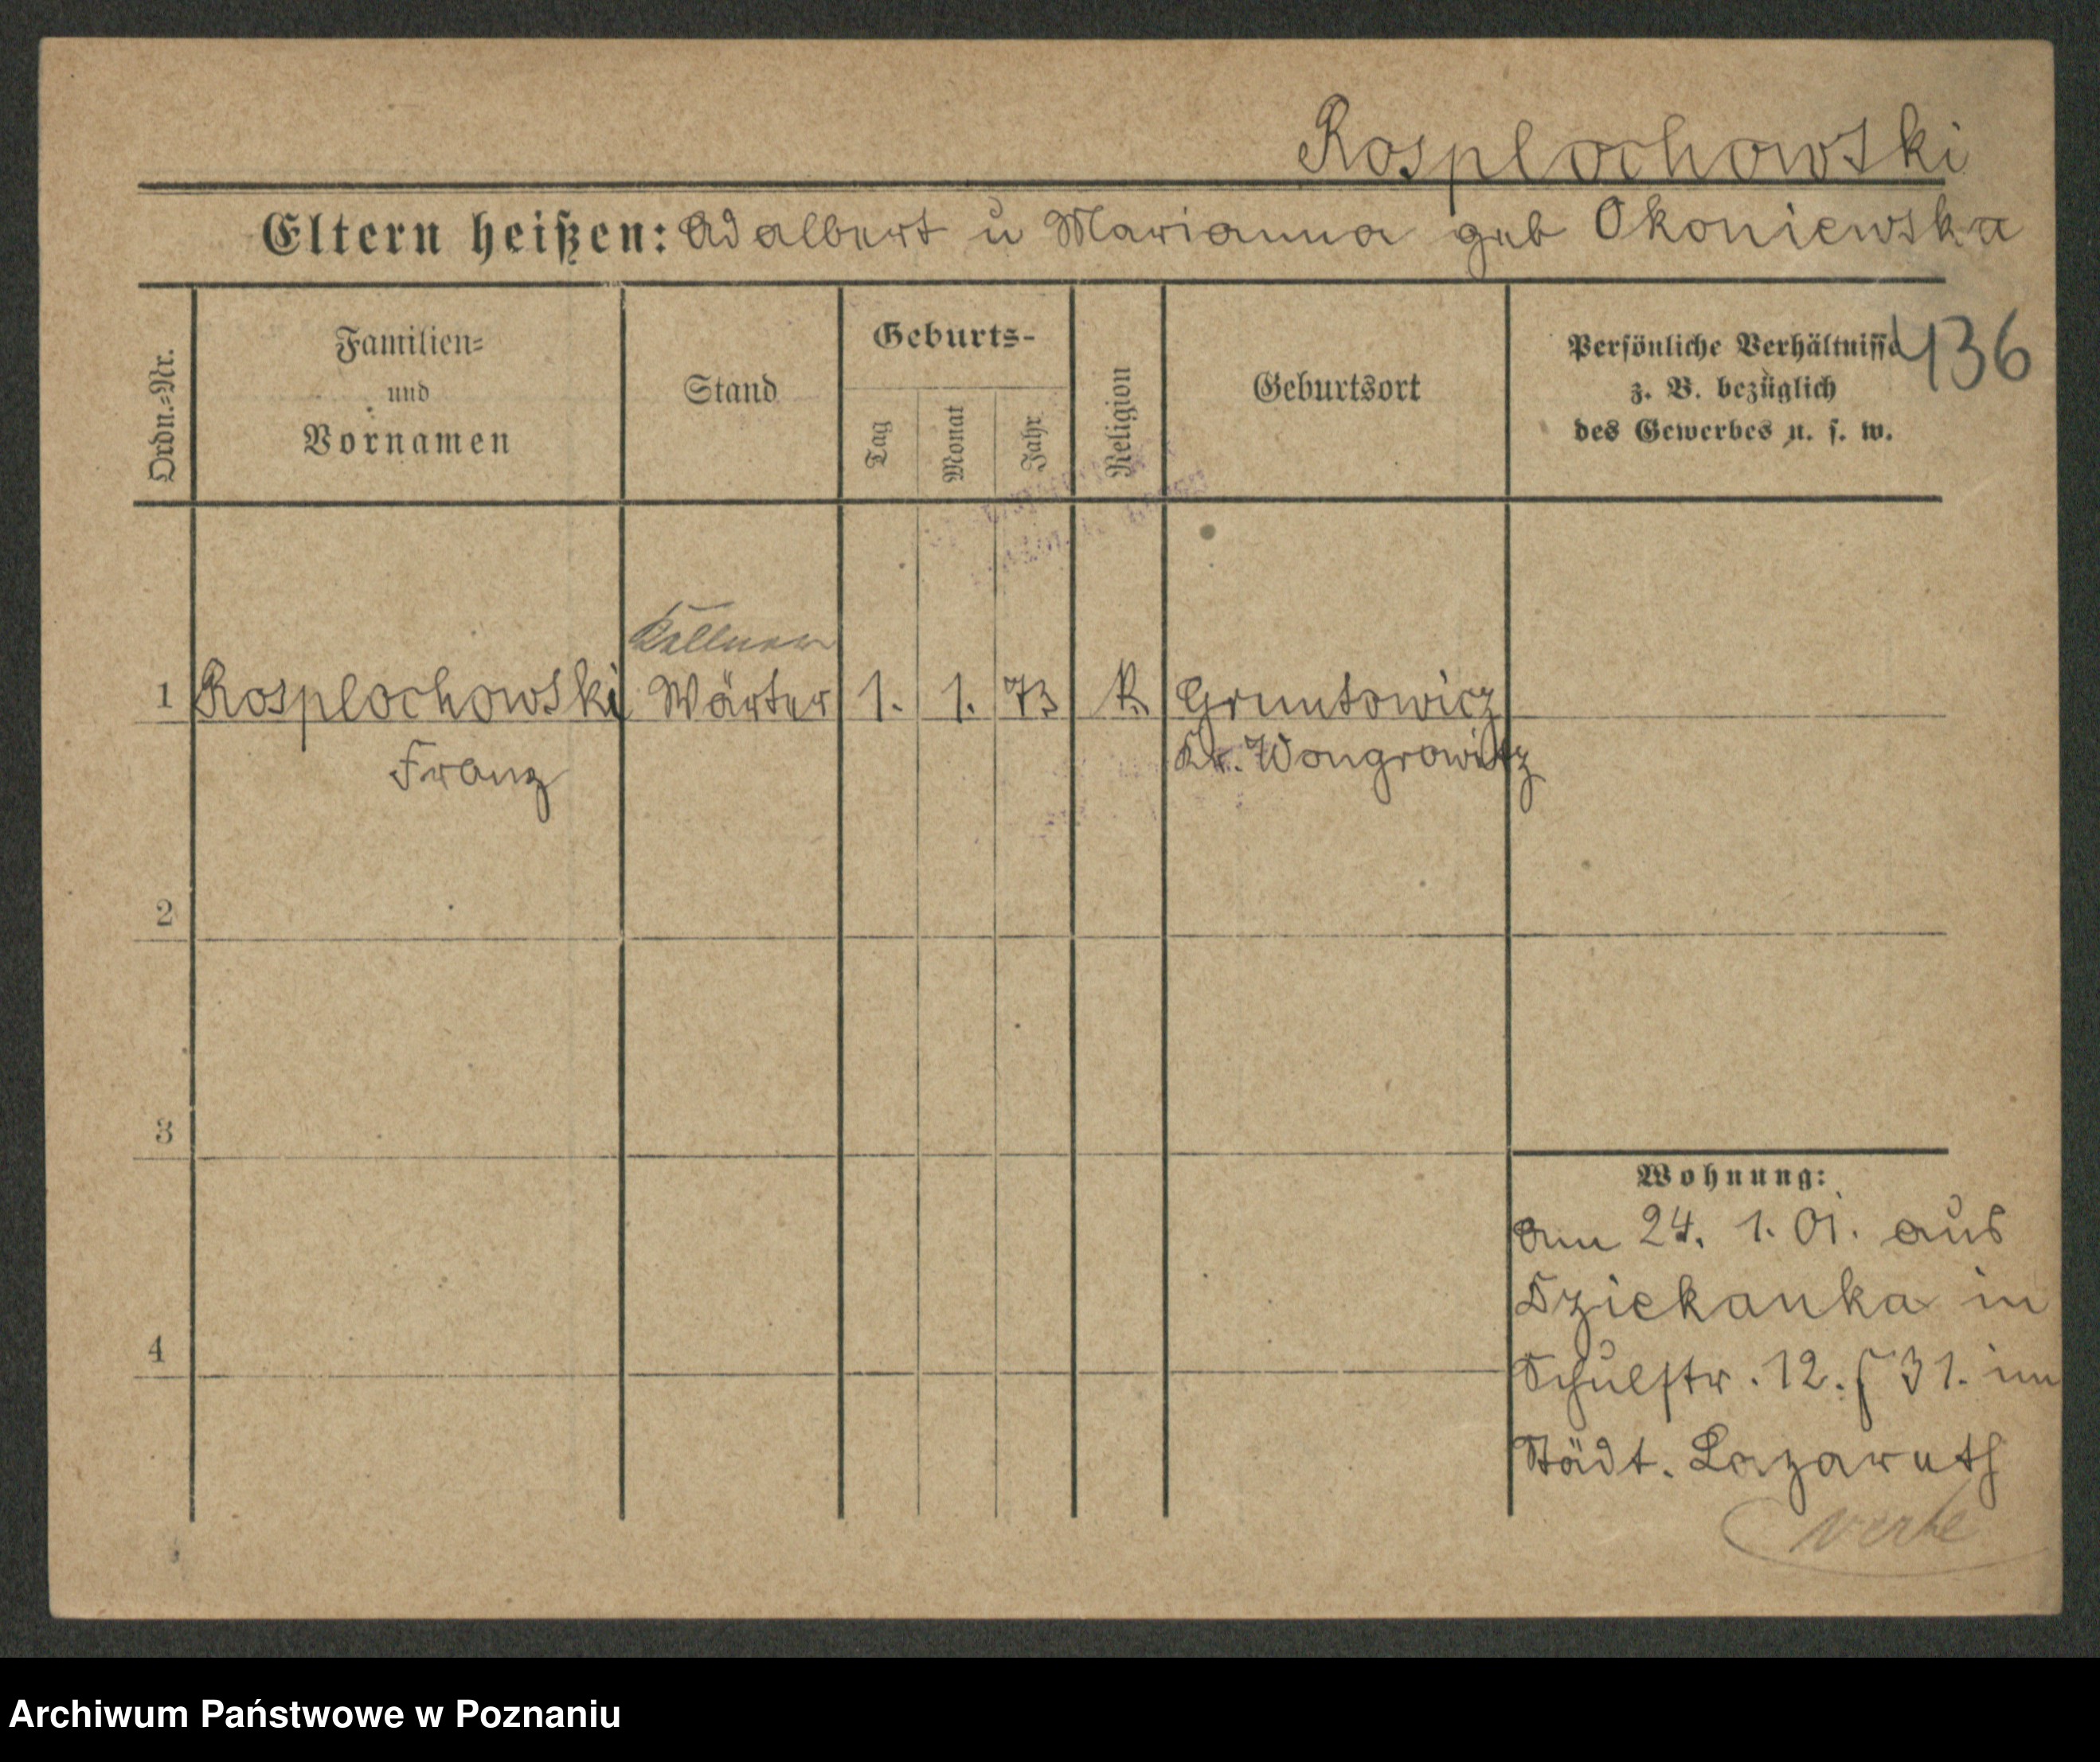 Rosplochowski
Eltern heißen: Adalbert u Marianna geb Okoniewska
Ordn.=Nr.
Familien=
und
Vornamen
Stand
Geburts-
Tag
Monat
Jahr
Religion
Geburtsort
Persönliche Verhältnisse
z. B. bezüglich
des Gewerbes u. s. w.
436
Kellner
1 Rosplochowski Wärter 1. 1. 73 k. Gruntowicz
Franz Kr. Wongrowitz
2
3
4
Wohnung:
Am 24. 1. 01. aus
Dziekanka in
Schulstr. 12. 31. im
Städt. Lazareth
Archiwum Państwowe w Poznaniu